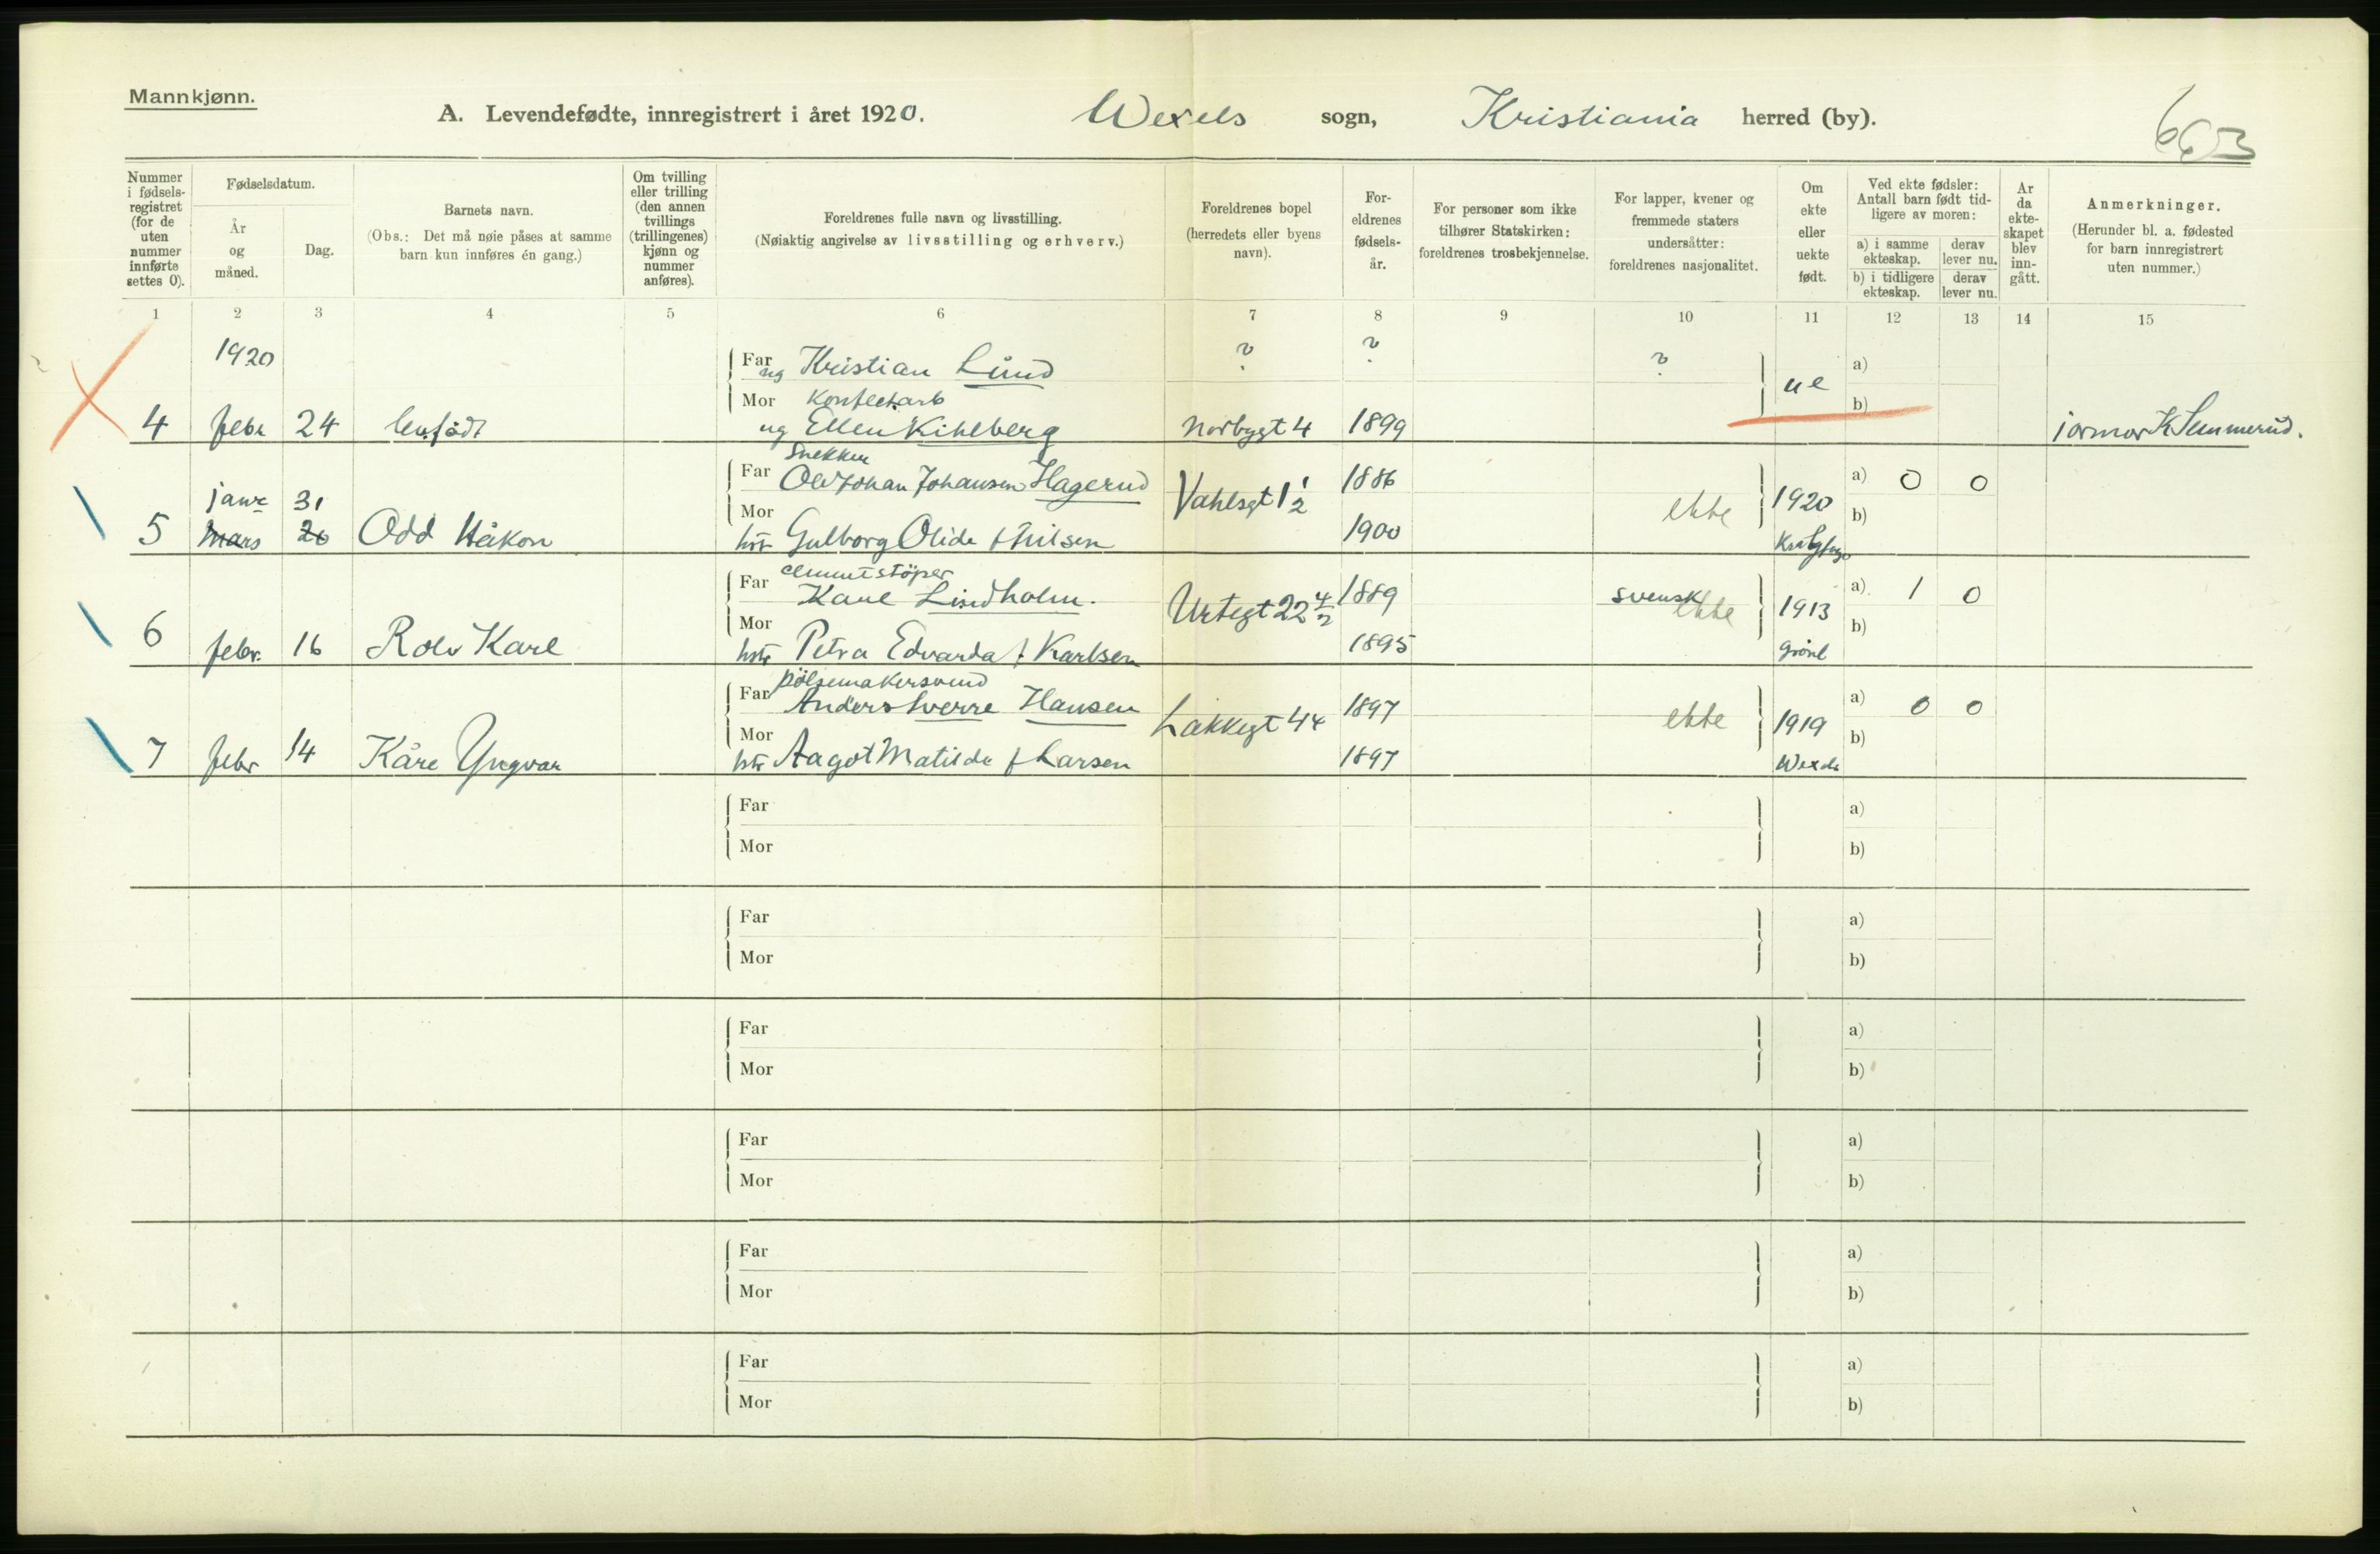 Mannkjønn.
A. Levendefødte, innregistrert i året 1920. Wexels sogn, Kristiania herred (by).
663
Nummer i fødsels-registret (for de uten nummer innførte settes 0).
Fødselsdatum.
År og måned.
Dag.
Barnets navn.
(Obs.: Det må nøie påses at samme barn kun innføres én gang.)
Om tvilling eller trilling (den annen tvillings (trillingenes) kjønn og nummer anføres).
Foreldrenes fulle navn og livsstilling.
(Nøiaktig angivelse av livsstilling og erhverv.)
Foreldrenes bopel (herredets eller byens navn).
For-eldrenes fødsels-år.
For personer som ikke tilhører Statskirken: foreldrenes trosbekjennelse.
For lapper, kvener og fremmede staters undersåtter: foreldrenes nasjonalitet.
Om ekte eller uekte født.
Ved ekte fødsler: Antall barn født tid-ligere av moren:
a) i samme ekteskap.
derav lever nu.
b) i tidligere ekteskap.
derav lever nu.
Ar da ekte-skapet blev inn-gått.
Anmerkninger.
(Herunder bl. a. fødested for barn innregistrert uten nummer.)
1 2 3 4 5 6 7 8 9 10 11 12 13 14 15
1920
Far ug Kristian Lund ? ? ? ue a)
Mor Konfect.arb b)
4 febr 24 lev.født ug Ellen Kihlberg Norbygt 4 1899 jormor K Semmerud.
Snekker
Far Ole Johan Johansen Hagerud Vahlsgt 1 1/2 1886 a) 0 0
janr 31
Mor ekte 1920 b)
5 mars 26 Odd Håkon hstr Gulborg Olide f Nilsen 1900
cementstöper
Far Karl Lindholm. Urtegt 22 4/2 1889 svensk ekte 1913 a) 1 0
Mor b)
6 febr. 16 Rolv Karl hstr Petra Edvarda f Karlsen 1895 Grönl
pölsemakersvend
Far Anders Sverre Hansen Lakkegt 44 1897 a) 0 0
Mor ekte 1919 b)
7 febr 14 Kåre Yngvar hstr Aagot Matilde f Larsen 1897 Wexels
Far a)
Mor b)
Far a)
Mor b)
Far a)
Mor b)
Far a)
Mor b)
Far a)
Mor b)
Far a)
Mor b)